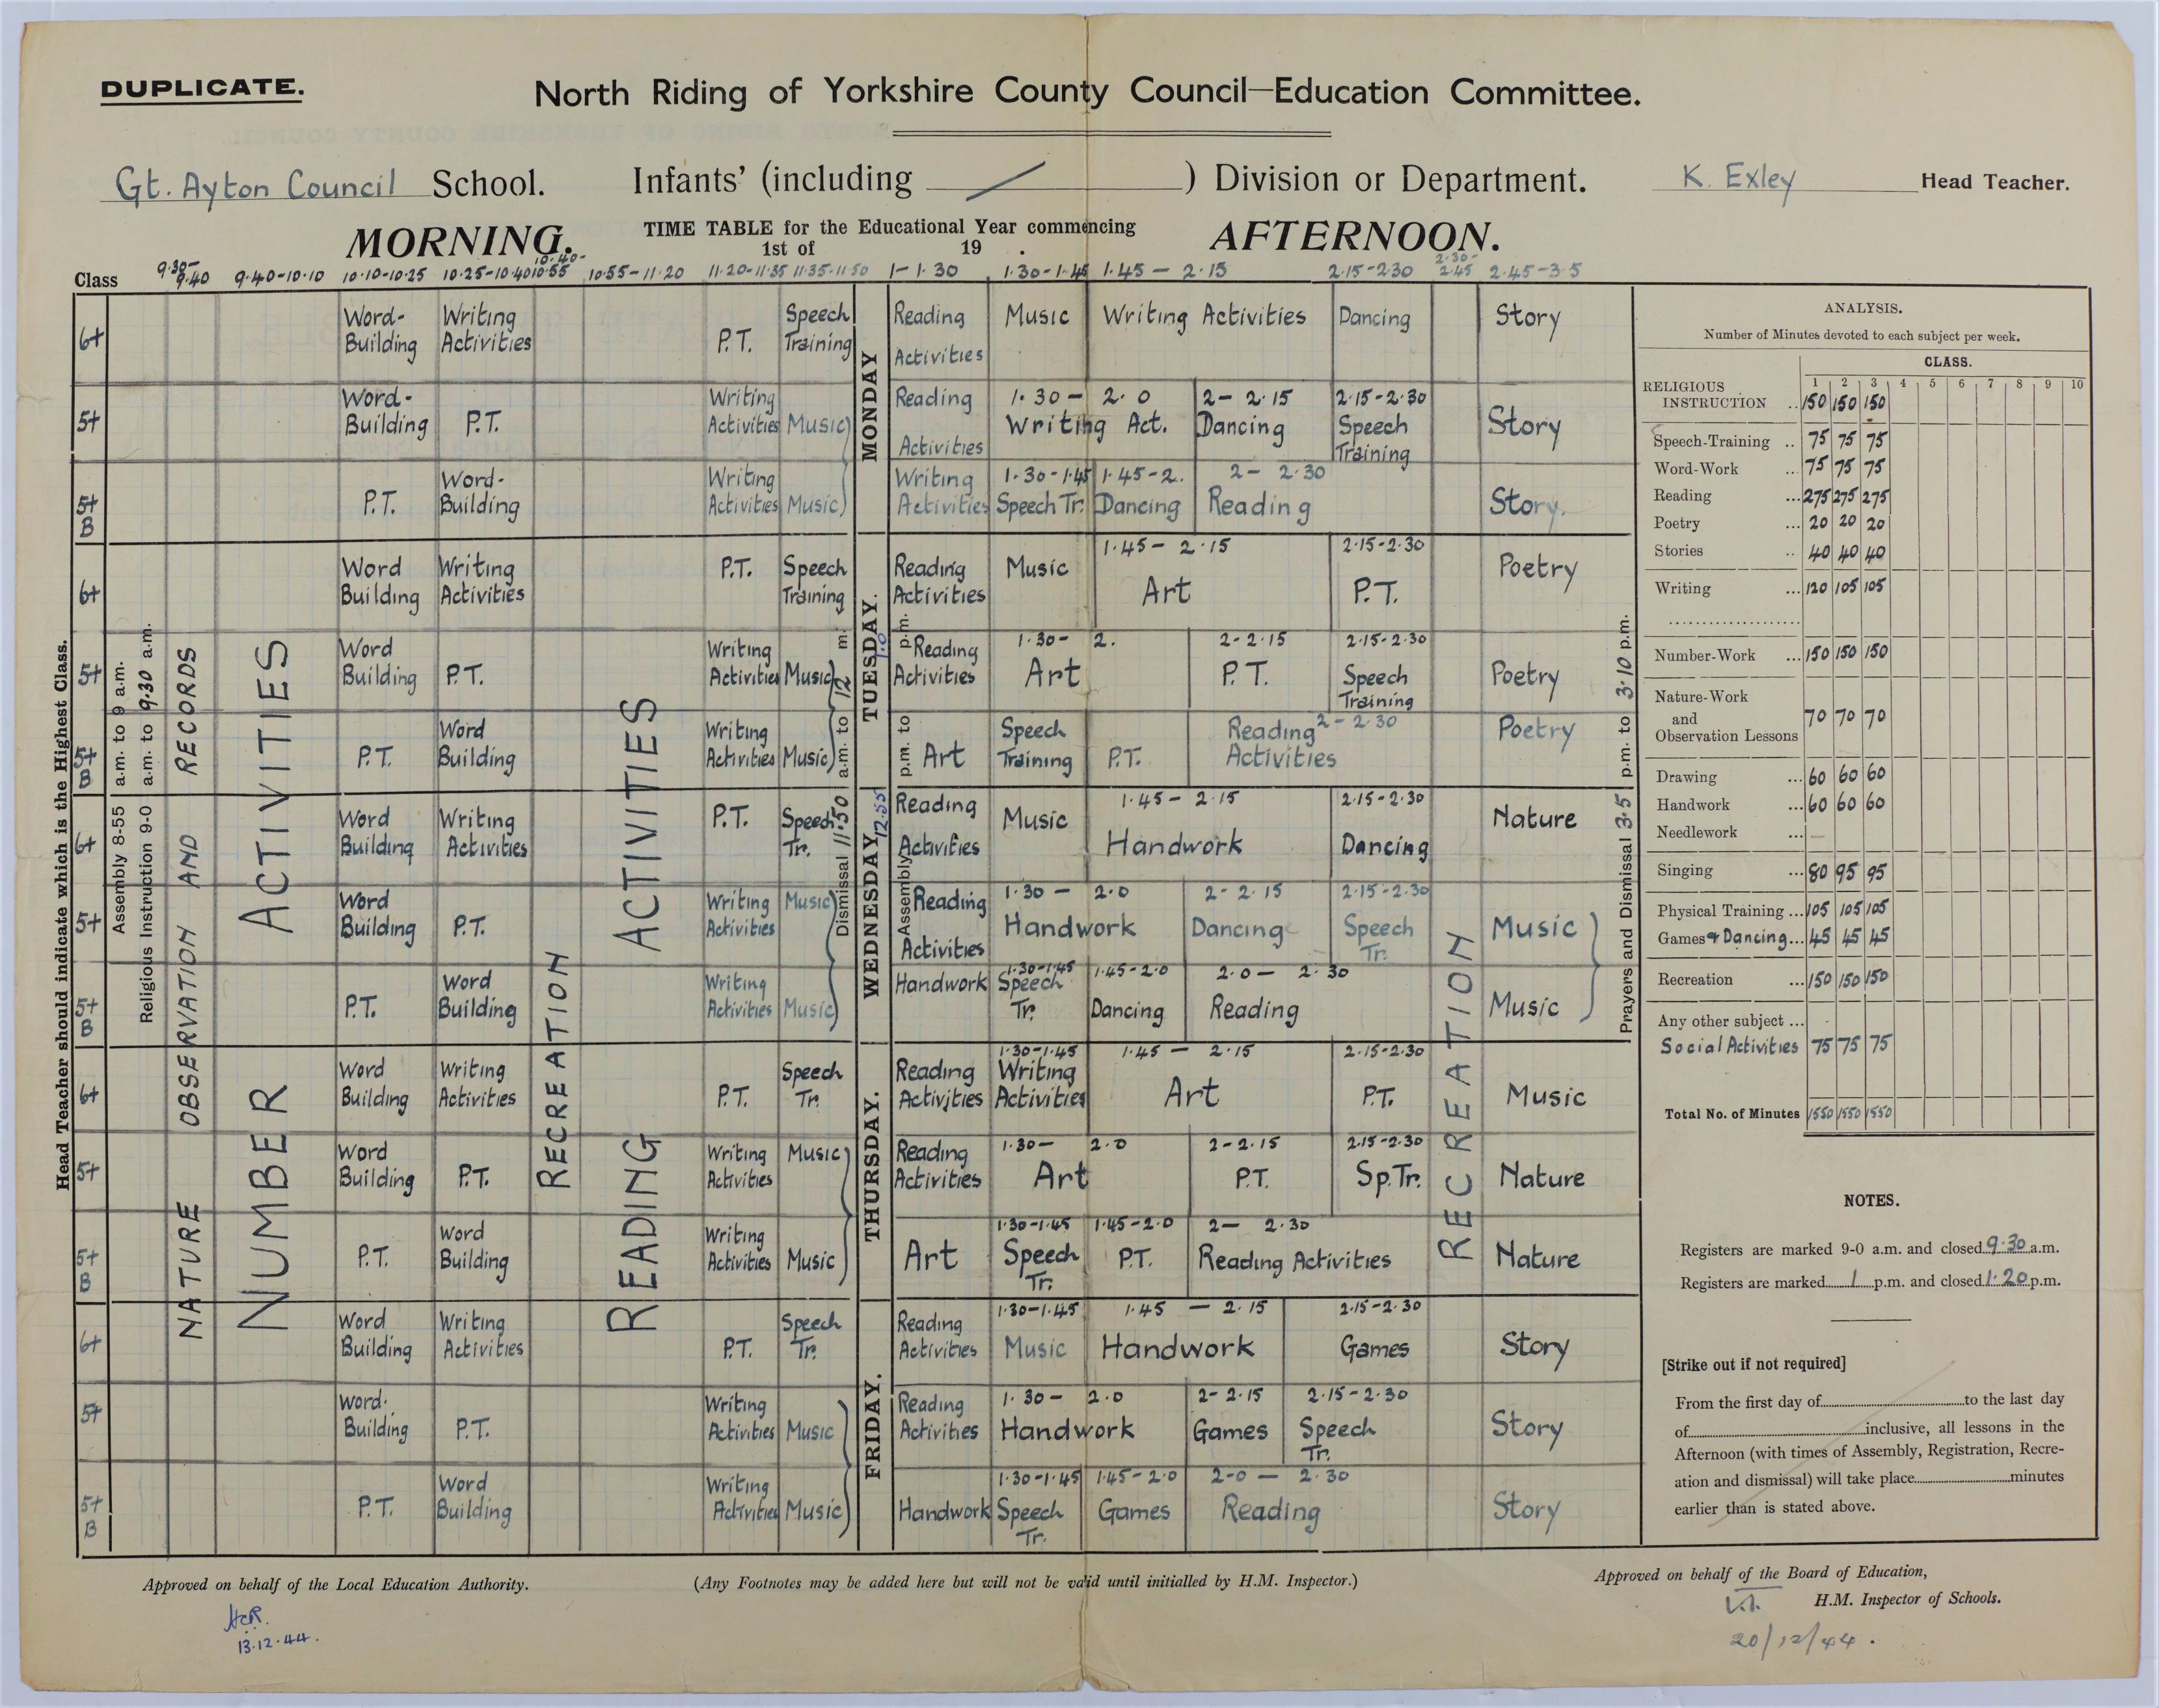 DUPLICATE.
North Riding of Yorkshire County Council—Education Committee.
Gt. Ayton Council School. Infants' (including / ) Division or Department. K. Exley Head Teacher.
MORNING. TIME TABLE for the Educational Year commencing AFTERNOON.
1st of 19 .
Class 9·30-9·40 9·40-10·10 10·10-10·25 10·25-10·40 10·40-10·55 10·55-11·20 11·20-11·35 11·35-11·50 1-1·30 1·30-1·45 1·45 - 2·15 2·15-2·30 2·30-2·45 2·45-3·5
Head Teacher should indicate which is the Highest Class.
Assembly 8-55 a.m. to 9 a.m.
Religious Instruction 9-0 a.m. to 9·30 a.m.
NATURE OBSERVATION AND RECORDS
NUMBER ACTIVITIES
RECREATION
READING ACTIVITIES
Dismissal 11·50 a.m. to 12 m.
Assembly 12·55 p.m. to 1·0 p.m.
RECREATION
Prayers and Dismissal 3·5 p.m. to 3·10 p.m.
MONDAY
6+ Word-Building Writing Activities P.T. Speech Training Reading Activities Music Writing Activities Dancing Story
5+ Word-Building P.T. Writing Activities Music Reading Activities 1·30 - 2·0 Writing Act. 2 - 2·15 Dancing 2·15-2·30 Speech Training Story
5+ B P.T. Word-Building Writing Activities Music Writing Activities 1·30-1·45 Speech Tr. 1·45-2. Dancing 2 - 2·30 Reading Story.
TUESDAY.
6+ Word Building Writing Activities P.T. Speech Training Reading Activities Music 1·45 - 2·15 Art 2·15-2·30 P.T. Poetry
5+ Word Building P.T. Writing Activities Music Reading Activities 1·30- 2. Art 2-2·15 P.T. 2·15-2·30 Speech Training Poetry
5+ B P.T. Word Building Writing Activities Music Art Speech Training P.T. Reading Activities 2 - 2·30 Poetry
WEDNESDAY
6+ Word Building Writing Activities P.T. Speech Tr. Reading Activities Music 1·45 - 2·15 Handwork 2·15-2·30 Dancing Nature
5+ Word Building P.T. Writing Activities Music Reading Activities 1·30 - 2·0 Handwork 2 - 2·15 Dancing 2·15-2·30 Speech Tr. Music
5+ B P.T. Word Building Writing Activities Music Handwork 1·30-1·45 Speech Tr. 1·45-2·0 Dancing 2·0 - 2·30 Reading Music
THURSDAY.
6+ Word Building Writing Activities P.T. Speech Tr. Reading Activities 1·30-1·45 Writing Activities 1·45 - 2·15 Art 2·15-2·30 P.T. Music
5+ Word Building P.T. Writing Activities Music Reading Activities 1·30- 2·0 Art 2-2·15 P.T. 2·15-2·30 Sp. Tr. Nature
5+ B P.T. Word Building Writing Activities Music Art 1·30-1·45 Speech Tr. 1·45-2·0 P.T. 2 - 2·30 Reading Activities Nature
FRIDAY.
6+ Word Building Writing Activities P.T. Speech Tr. Reading Activities 1·30-1·45 Music 1·45 - 2·15 Handwork 2·15-2·30 Games Story
5+ Word Building P.T. Writing Activities Music Reading Activities 1·30 - 2·0 Handwork 2-2·15 Games 2·15-2·30 Speech Tr. Story
5+ B P.T. Word Building Writing Activities Music Handwork 1·30-1·45 Speech Tr. 1·45-2·0 Games 2-0 - 2·30 Reading Story
ANALYSIS.
Number of Minutes devoted to each subject per week.
CLASS.
1 2 3 4 5 6 7 8 9 10
RELIGIOUS
INSTRUCTION .. 150 150 150
Speech-Training .. 75 75 75
Word-Work ... 75 75 75
Reading ... 275 275 275
Poetry ... 20 20 20
Stories .. 40 40 40
Writing ... 120 105 105
Number-Work ... 150 150 150
Nature-Work
and
Observation Lessons 70 70 70
Drawing ... 60 60 60
Handwork ... 60 60 60
Needlework ... —
Singing ... 80 95 95
Physical Training ... 105 105 105
Games & Dancing... 45 45 45
Recreation ... 150 150 150
Any other subject ...
Social Activities 75 75 75
Total No. of Minutes 1550 1550 1550
NOTES.
Registers are marked 9-0 a.m. and closed 9·30 a.m.
Registers are marked 1 p.m. and closed 1·20 p.m.
[Strike out if not required]
From the first day of to the last day
of inclusive, all lessons in the
Afternoon (with times of Assembly, Registration, Recre-
ation and dismissal) will take place minutes
earlier than is stated above.
Approved on behalf of the Local Education Authority.
(Any Footnotes may be added here but will not be valid until initialled by H.M. Inspector.)
Approved on behalf of the Board of Education,
H.M. Inspector of Schools.
13.12.44.
20/12/44.